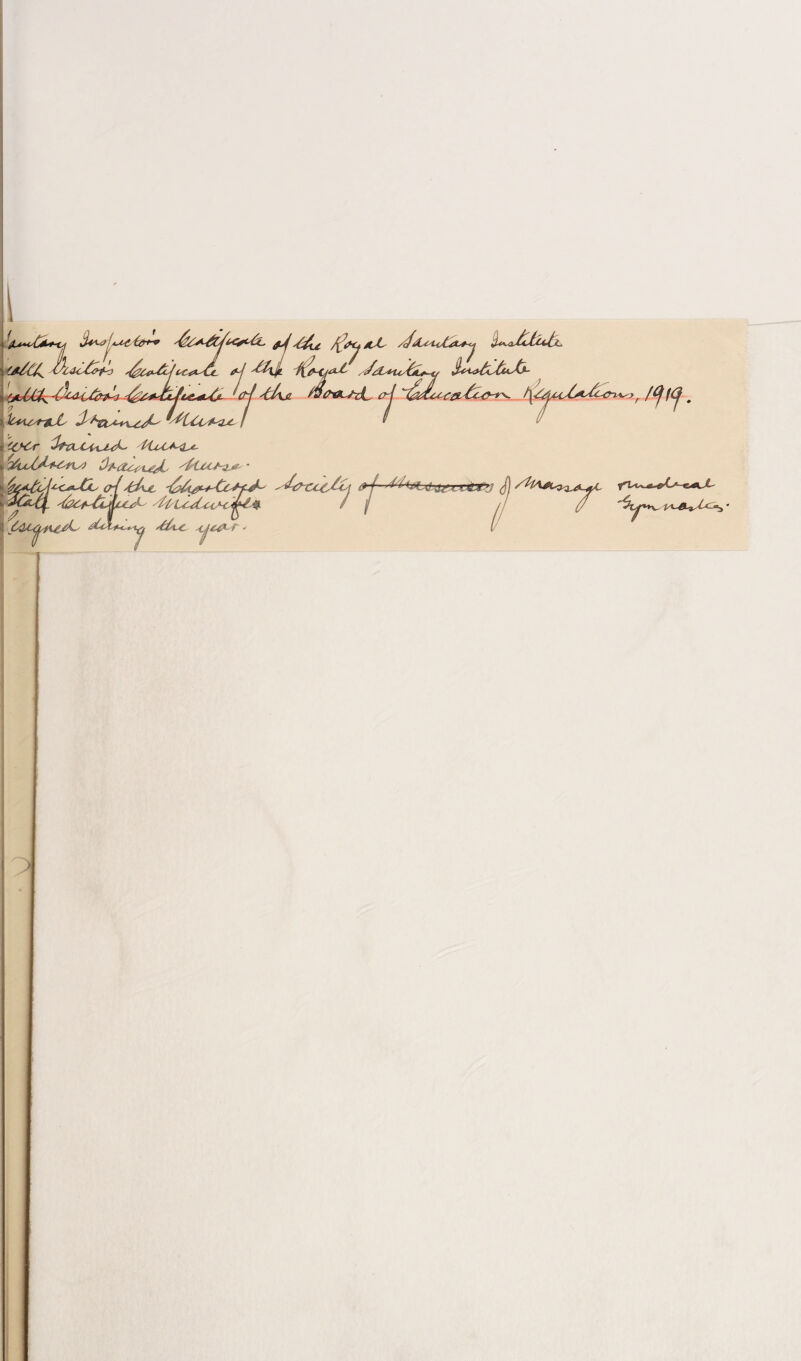 Sanitary Inspectors Certificate of the Royal Sanitary Institute.
ealth Visitors Certificate of the Royal Sanitary Institute
ealth Visitors Certificate of the Board of Education Regulations, 1919.
General Trained Nurse
ever Trained Nurse
Childrens Trained Nurse.
Certificate of the Chartered Society of Masseuses of Massage medical
Gymnastics.
Certified Midwife
esigned during the year.